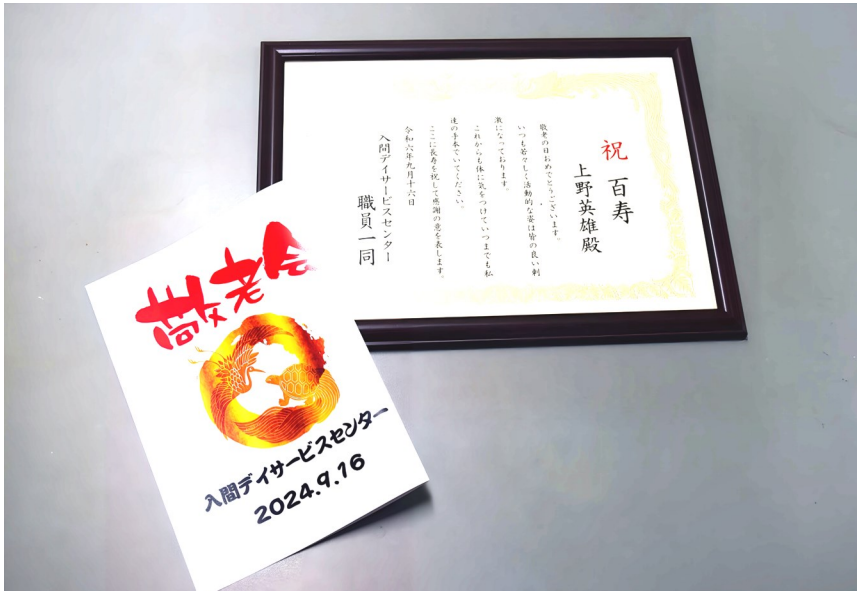 祝 百寿
上野英雄殿
敬老の日おめでとうございます。
いつも若々しく活動的な姿は皆の良い刺
激になっております。
これからも体に気をつけていつまでも私
達の手本でいてください。
ここに長寿を祝して感謝の意を表します。
令和六年九月十六日
入間デイサービスセンター
職員一同
敬老会
入間デイサービスセンター
2024.9.16